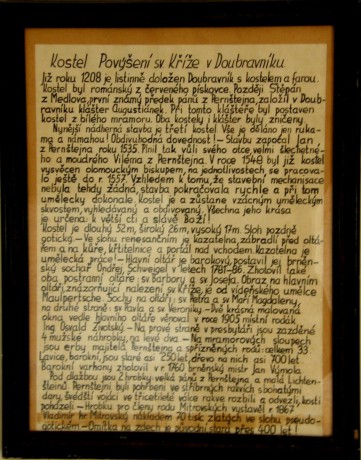 Kostel Povýšení sv Kříže v Doubravníku
Již roku 1208 je listinně doložen Doubravník s kostelem a farou.
Kostel byl románský z červeného pískovce. Později Štěpán
z Medlova, první známý předek pánů z Pernštejna, založil v Doub-
ravníku klášter Augustiánek. Při tomto klášteře byl postaven
kostel z bílého mramoru. Oba kostely i klášter byly zničeny.
Nynější nádherná stavba je třetí kostel. Vše je děláno jen ruka-
ma a námahou! Obdivuhodná dovednost! – Stavbu započal Jan
z Pernštejna roku 1535. Plnil tak vůli svého otce, velmi šlechetné-
ho a moudrého Viléma z Pernštejna. V roce 1548 byl již kostel
vysvěcen olomouckým biskupem, na jednotlivostech se pracova-
lo ještě do r. 1557. Vzhledem k tomu, že stavební mechanisace
nebyla tehdy žádná, stavba pokračovala rychle a při tom
umělecky dokonale. Kostel je a zůstane vzácným uměleckým
skvostem, vyhledávaný a obdivovaný. Všechna jeho krása
je určena: k větší cti a slávě Boží!
Kostel je dlouhý 52m, široký 26m, vysoký 17m. Sloh pozdně
gotický. – Ve slohu renesančním je kazatelna, zábradlí před oltá-
řem a na kůře, křtitelnice a portál nad vchodem. Kazatelna je
umělecká práce! – Hlavní oltář je barokový, postavil jej brněn-
ský sochař Ondřej Schweigel v letech 1781-86. Zhotovil také
oba postranní oltáře: sv Barbory a sv Josefa. Obraz, na hlavním
oltáři, znázorňující nalezení sv. kříže, je od vídeňského umělce
Maulpertsche. Sochy na oltáři: sv Petra a sv Maří Magdaleny,
na druhé straně: sv Pavla a sv Veroniky. – Dvě krásná malovaná
okna, vedle hlavního oltáře věnoval v roce 1905 místní rodák
Ing Osvald Životský. – Na pravé straně v presbytáři jsou zazděné
4 mužské náhrobky, na levé dva. – Na mramorových sloupech
jsou erby majitelů Pernštejna a spřízněných rodů: celkem 33
Lavice, barokní, jsou staré asi 250 let, dřevo na nich asi 700 let.
Barokní varhany zhotovil v r 1760 brněnský mistr Jan Výmola
Pod dlažbou jsou 2 hrobky: velká pánů z Pernštejna a malá Lichten-
štejnů Pernštejni byli pohřbeni ve stříbrných rakvích s bohatými
dary, švédští vojáci ve třicetileté válce rakve rozbili a odvezli, kosti
poházeli – Hrobku pro členy rodu Mitrovských vystavěl r 1867
Vladimír hr. Mitrovský nákladem 70 tisíc zlatých ve slohu pseudo-
gotickém – Omítka na zdech je původní stará přes 400 let!